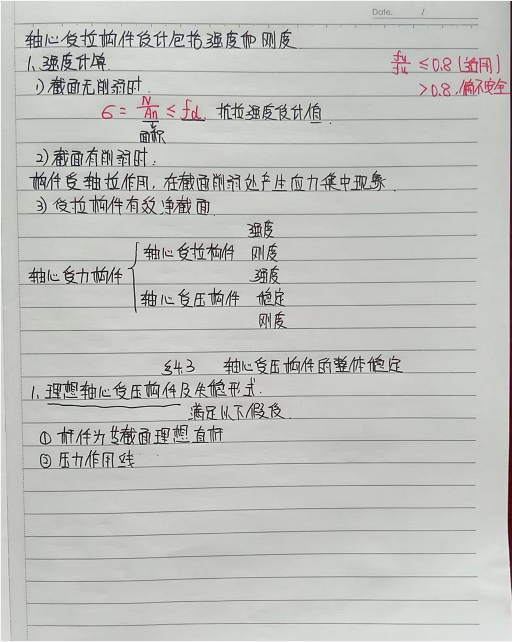 Date. /
轴心受拉构件设计包括强度和刚度
1、强度计算
fy/fu ≤0.8 (适用)
>0.8,偏不安全
1) 截面无削弱时
σ = N/An ≤ fd 抗拉强度设计值
面积
2) 截面有削弱时:
构件受轴拉作用,在截面削弱处产生应力集中现象
3) 受拉构件有效净截面
强度
轴心受拉构件 刚度
轴心受力构件
强度
轴心受压构件 稳定
刚度
§4.3 轴心受压构件的整体稳定
1、理想轴心受压构件及失稳形式.
满足以下假设
① 杆件为等截面理想直杆
② 压力作用线